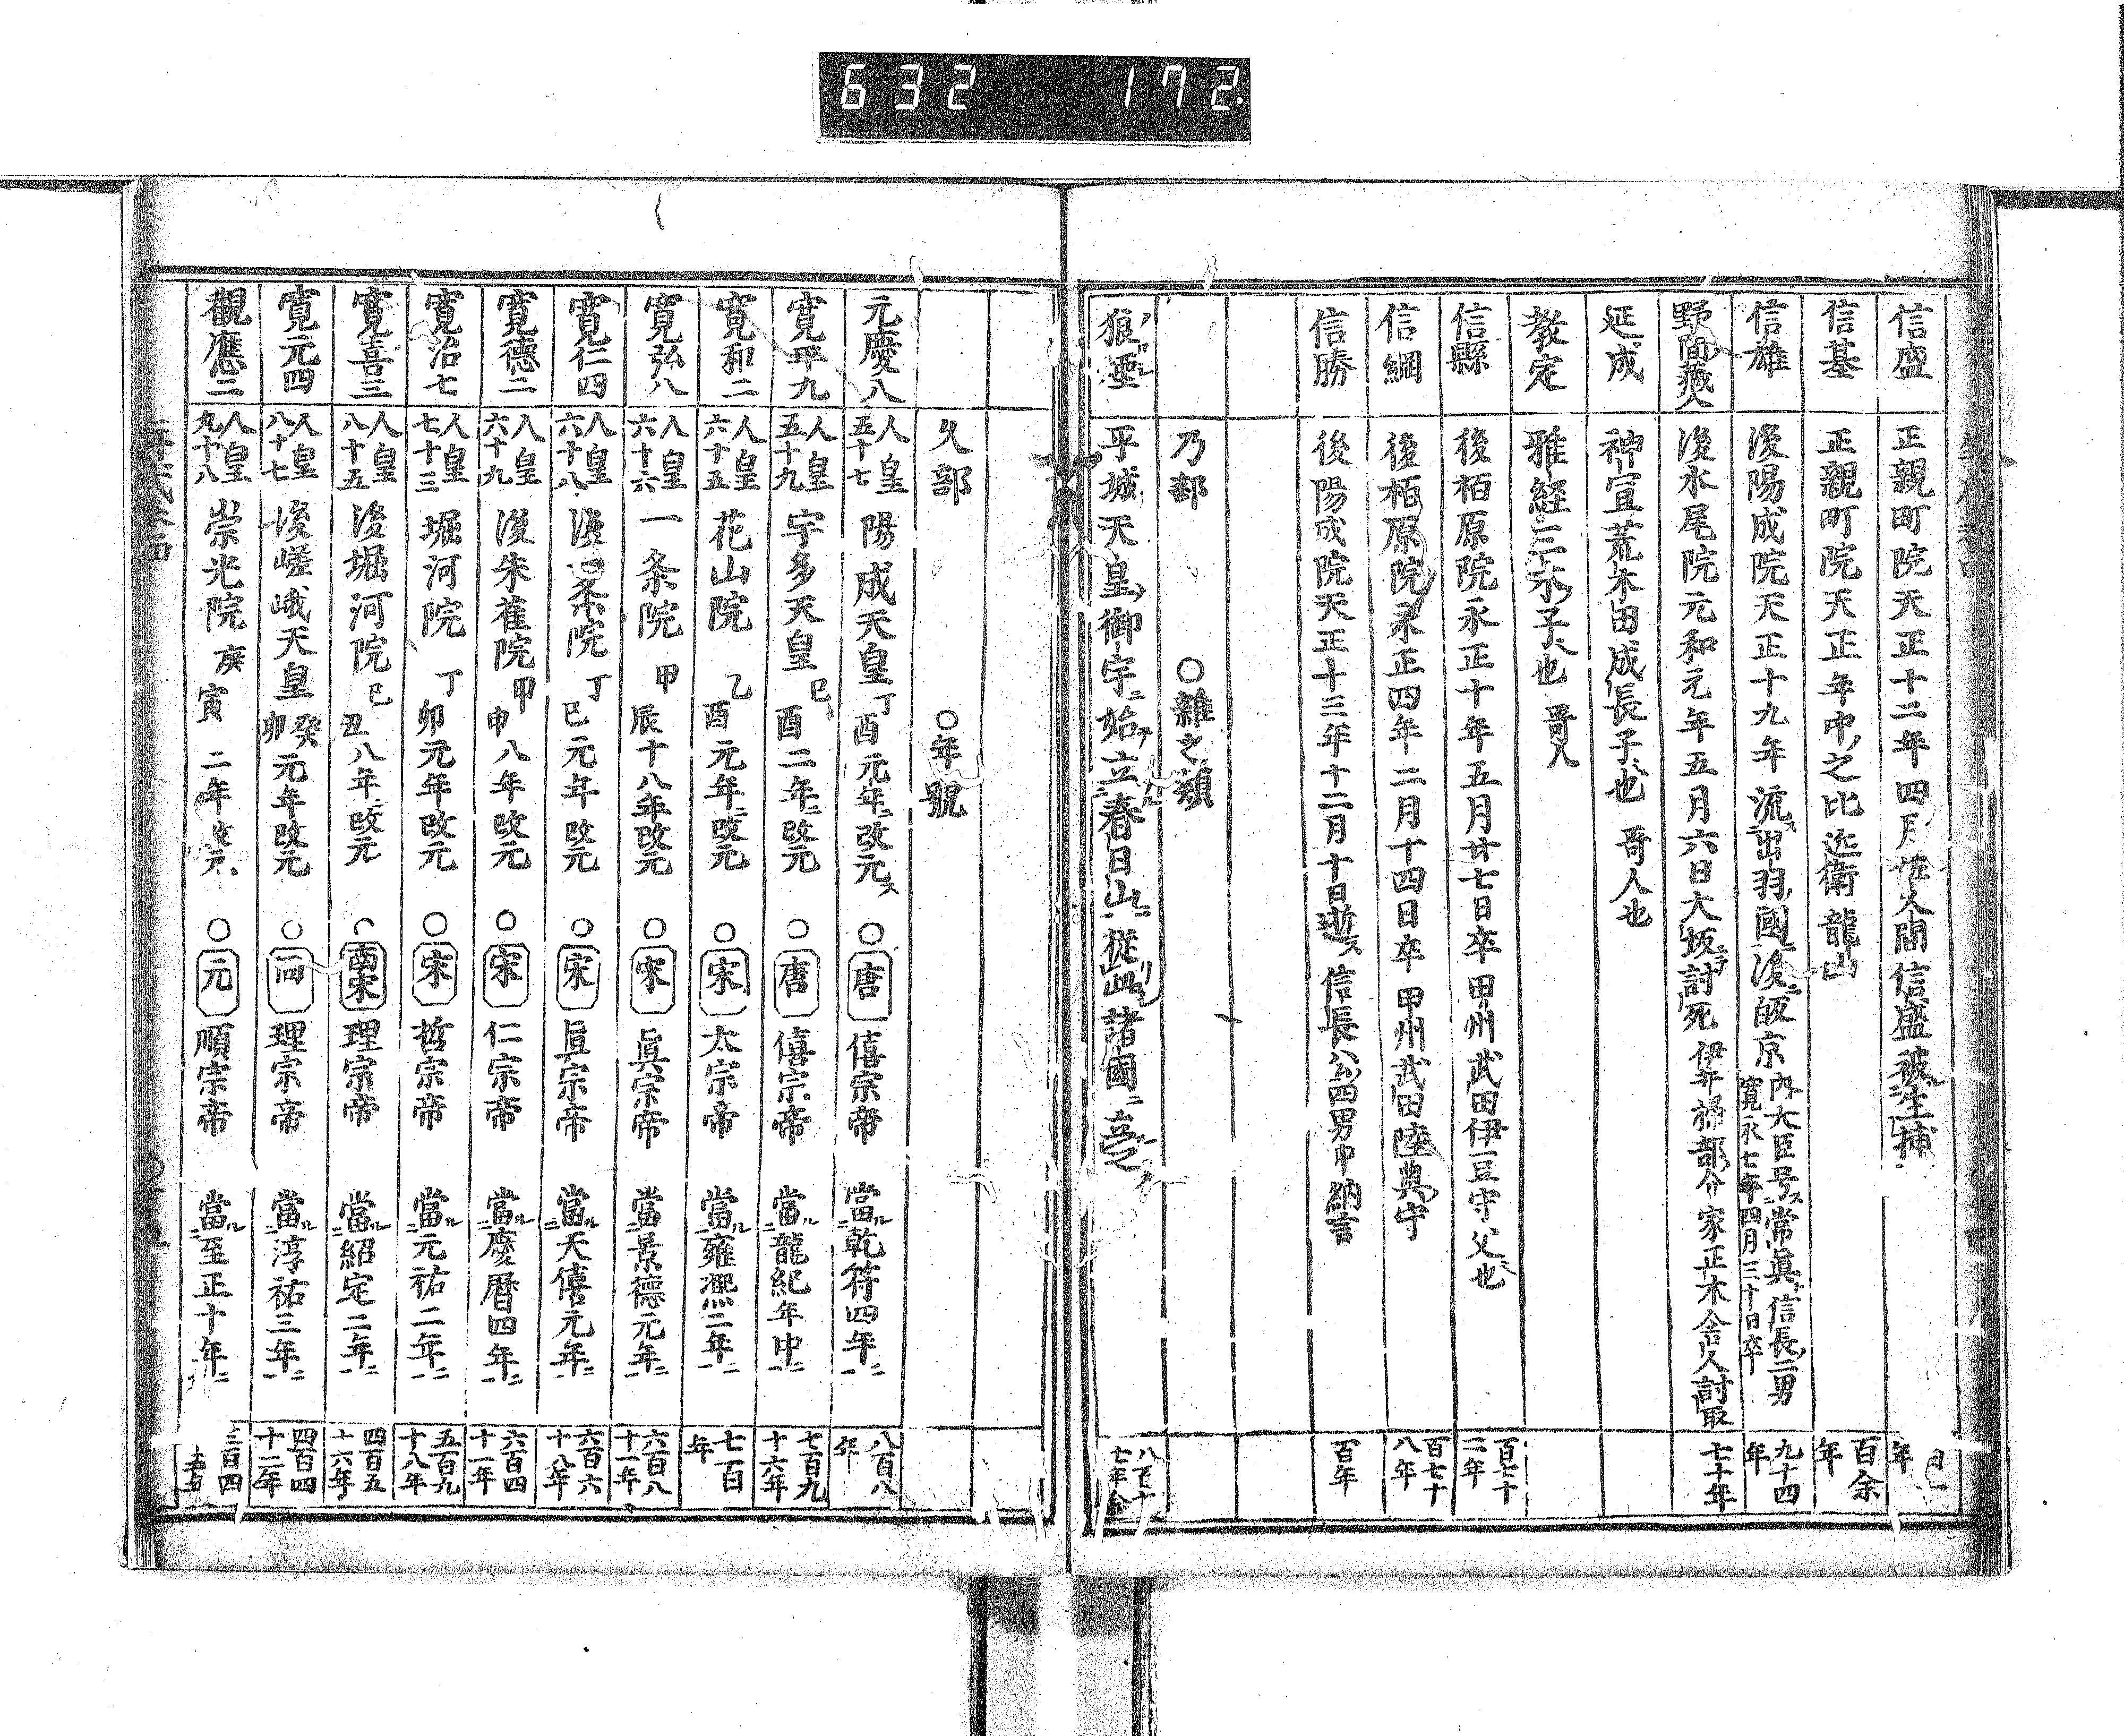 632 172
信盛 正親町院天正十二年四月佐久間信盛被生捕 年
信基 正親町院天正年中之比近衛龍山 百余年
信雄 後陽成院天正十九年流出羽國後皈京 内大臣号常眞信長二男 寛永七年四月三十日卒 九十四年
野間藏人 後水尾院元和元年五月六日大坂討死 伊井掃部介家正木舎人討取 七十年
延成 神宜荒木田成長子也 哥人也
教定 雅経三木子也 哥人
信縣 後栢原院永正十年五月廿七日卒 甲州武田伊豆守父也 百七十二年
信綱 後栢原院永正四年二月十四日卒 甲州武田陸奥守 百七十八年
信勝 後陽成院天正十三年十二月十日逝ス 信長公四男中納言 百年
乃部 ○雜之類
狼煙 平城天皇御宇ニ始立春日山従此諸國ニ立之
久部 ○年號
元慶八 人皇五十七 陽成天皇 丁酉元年ニ改元ス ○唐 僖宗帝 當ル乾符四年ニ 八百八年
寛平九 人皇五十九 宇多天皇 巳酉二年ニ改元 ○唐 僖宗帝 當ル龍紀年中ニ 七百九十六年
寛和二 人皇六十五 花山院 乙酉元年ニ改元 ○宋 太宗帝 當ル雍熙二年ニ 七百年
寛弘八 人皇六十六 一条院 甲辰十八年改元 ○宋 眞宗帝 當ル景德元年ニ 六百八十一年
寛仁四 人皇六十八 後一条院 丁巳元年改元 ○宋 眞宗帝 當ル天僖元年ニ 六百六十八年
寛德二 人皇六十九 後朱雀院 甲申八年改元 ○宋 仁宗帝 當ル慶暦四年ニ 六百四十一年
寛治七 人皇七十三 堀河院 丁卯元年改元 ○宋 哲宗帝 當ル元祐二年ニ 五百九十八年
寛喜三 人皇八十五 後堀河院 巳丑八年改元 ○南宋 理宗帝 當ル紹定二年ニ 四百五十六年
寛元四 人皇八十七 後嵯峨天皇 癸卯元年改元 ○同 理宗帝 當ル淳祐三年ニ 四百四十二年
觀應二 人皇九十八 崇光院 庚寅二年改元 ○元 順宗帝 當ル至正十年ニ 三百四